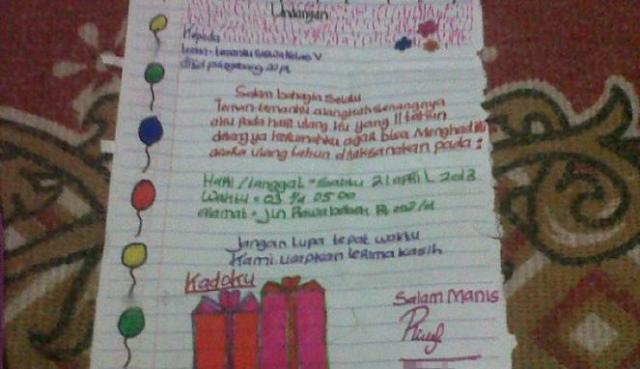 Undangan
Kepada
teman-temanku siswa kelas V
di
Salam bahagia selalu
Teman-temanku alangkah senangnya
aku pada hari ulang thu yang 11 tahun
datang ya kerumahku agar bisa Menghadiri
acara ulang tahun dilaksanakan pada :
Hari / tanggal = Sabtu 21 April 2013
Waktu = 03 05 00
alamat = jln
Jangan lupa tepat waktu
Kami ucapkan terima kasih
Kadoku
Salam Manis